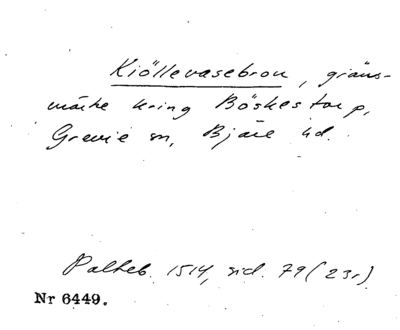 Kiöllevasebron, gräns-
märke kring Böskestorp,
Grevie sn, Bjäre hd.
Palteb. 1514, sid. 79 (23r)
Nr 6449.